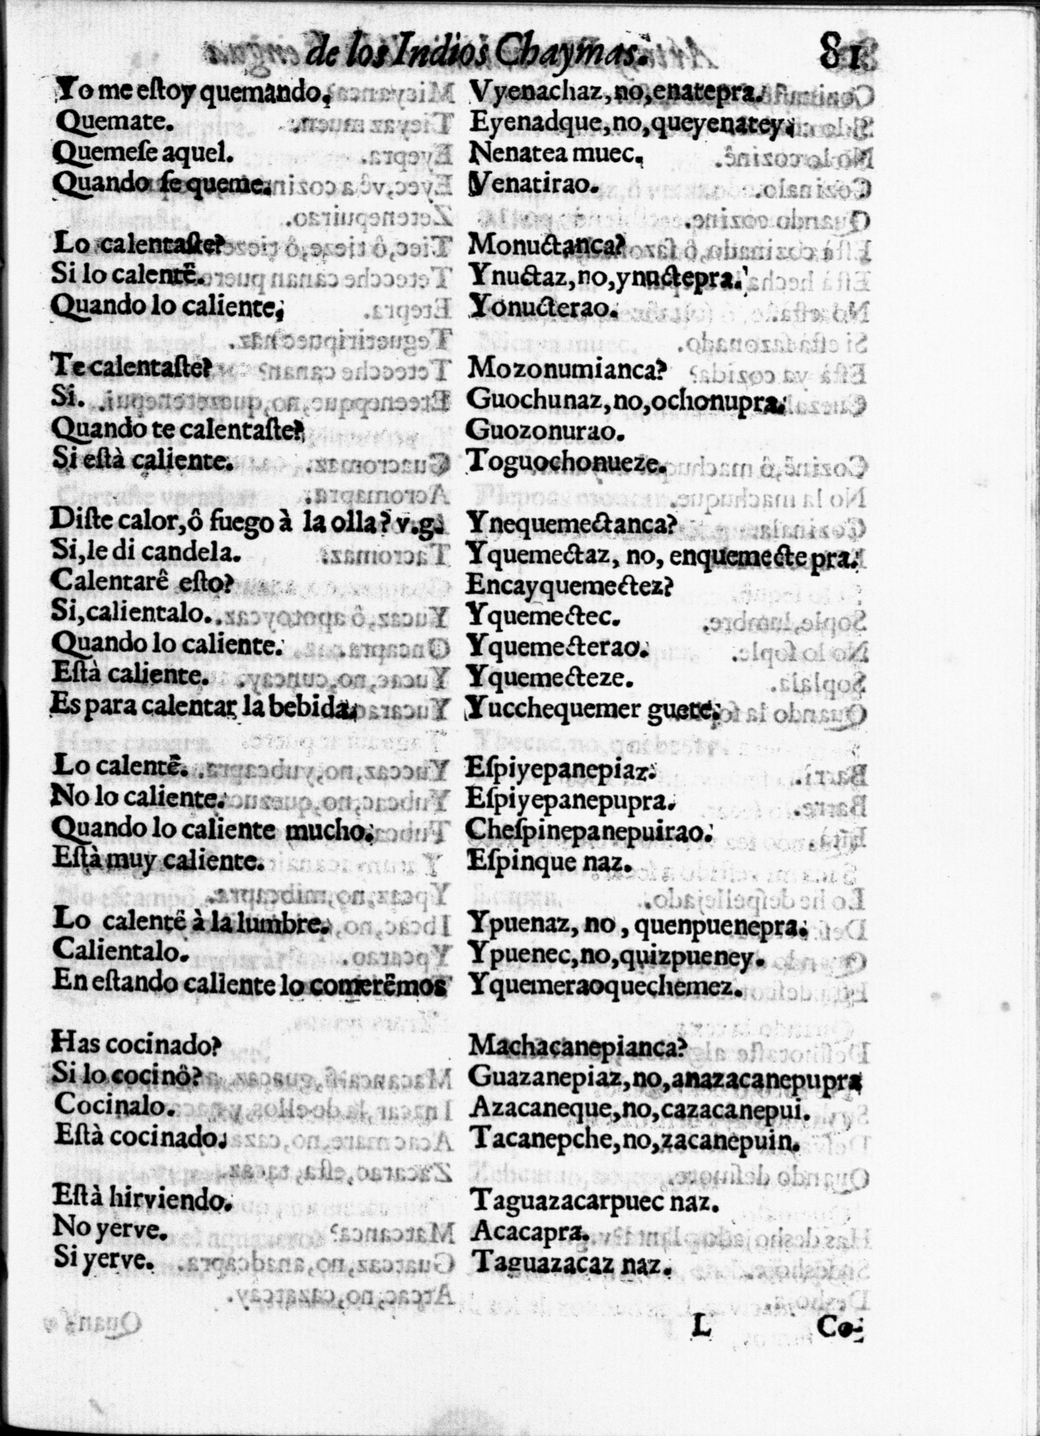 de los Indios Chaymas. 81
Yo me eſtoy quemando. Vyenachaz, no, enatepra.
Quemate. Eyenadque, no, queyenatey.
Quemeſe aquel. Nenatea muec.
Quando ſe queme. Venatirao.
Lo calentaſte? Monuctanca?
Si lo calentê. Ynuctaz, no, ynuctepra.
Quando lo caliente. Yonucterao.
Te calentaſte? Mozonumianca?
Si. Guochunaz, no, ochonupra.
Quando te calentaſte? Guozonurao.
Si eſtà caliente. Toguochonueze.
Diſte calor, ô fuego à la olla? v.g. Ynequemectanca?
Si, le di candela. Yquemectaz, no, enquemecte pra.
Calentarê eſto? Encayquemectez?
Si, calientalo. Yquemectec.
Quando lo caliente. Yquemecterao.
Eſtà caliente. Yquemecteze.
Es para calentar la bebida. Yucchequemer guete.
Lo calentê. Eſpiyepanepiaz.
No lo caliente. Eſpiyepanepupra.
Quando lo caliente mucho. Cheſpinepanepuirao.
Eſtà muy caliente. Eſpinque naz.
Lo calentê à la lumbre. Ypuenaz, no, quenpuenepra.
Calientalo. Ypuenec, no, quizpueney.
En eſtando caliente lo comerêmos Yquemeraoquechemez.
Has cocinado? Machacanepianca?
Si lo cocinô? Guazanepiaz, no, anazacanepupra
Cocinalo. Azacaneque, no, cazacanepui.
Eſtà cocinado. Tacanepche, no, zacanepuin.
Eſtà hirviendo. Taguazacarpuec naz.
No yerve. Acacapra.
Si yerve. Taguazacaz naz.
L Co-